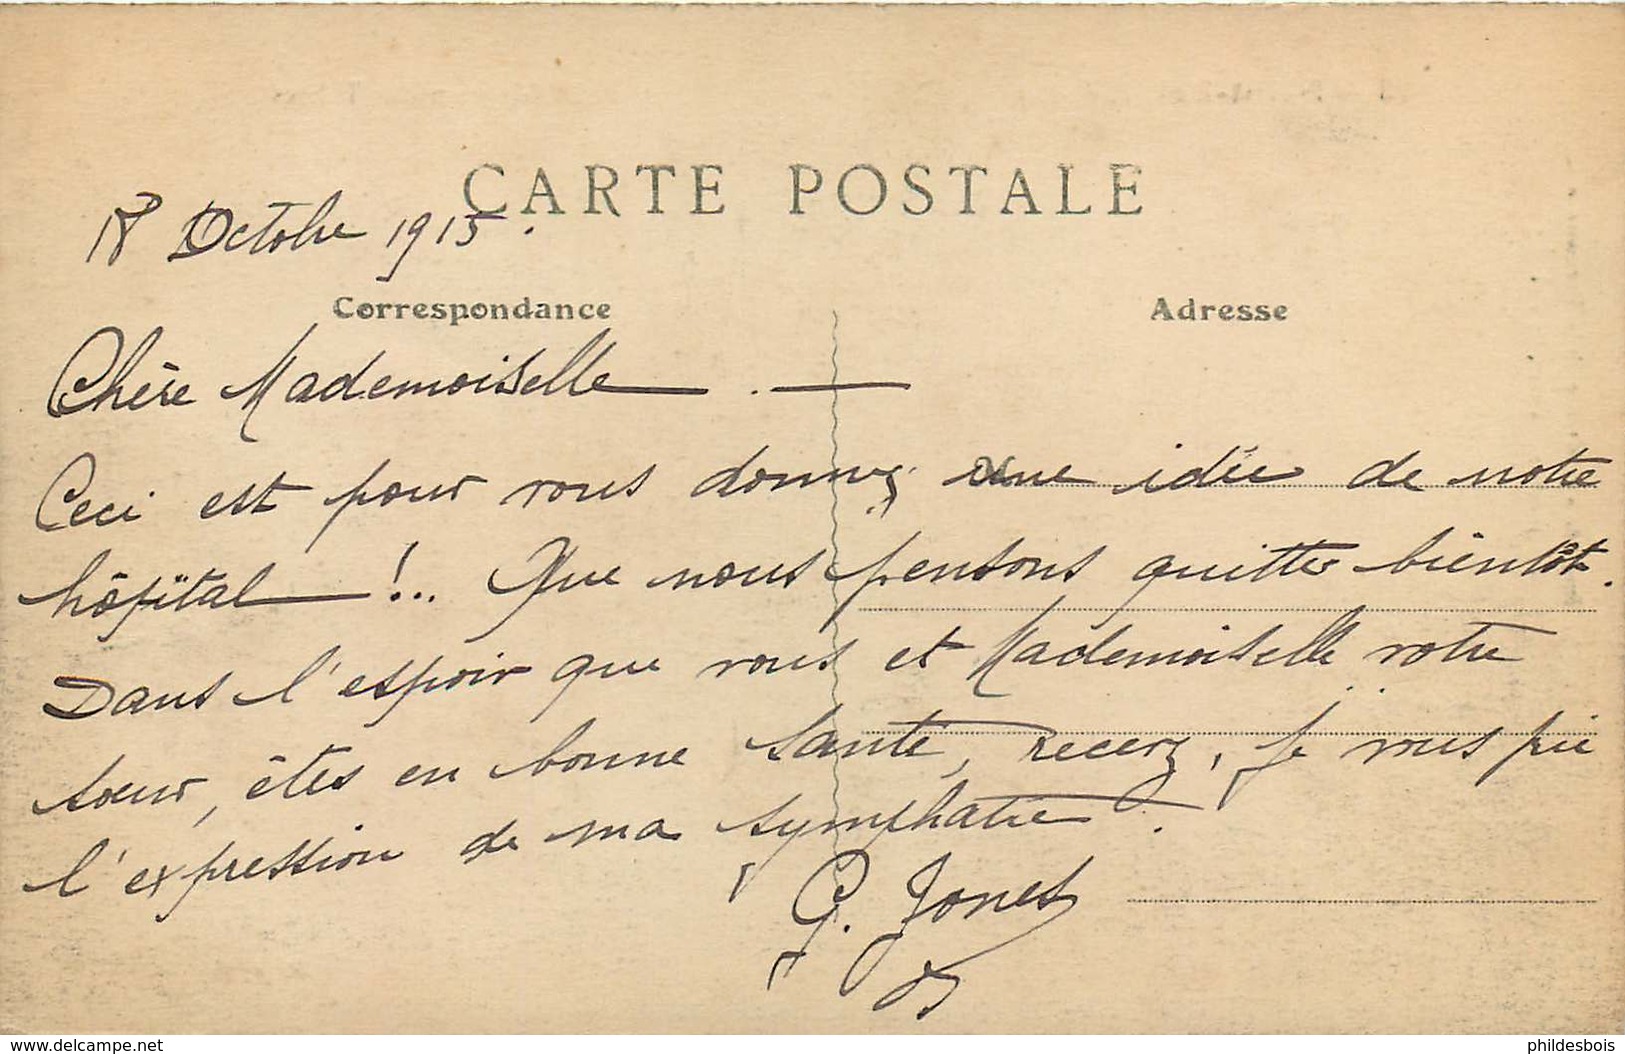 CARTE POSTALE
18 Octobre 1915.
Correspondance
Adresse
Chère Mademoiselle — . —
Ceci est pour vous donner une idée de notre
hôpital — !.. Que nous pensons quitter bientôt.
Dans l'espoir que vous et Mademoiselle votre
sœur, êtes en bonne santé, recevez, je vous prie
l'expression de ma symphatie.
G. Jones
www.delcampe.net
phildesbois